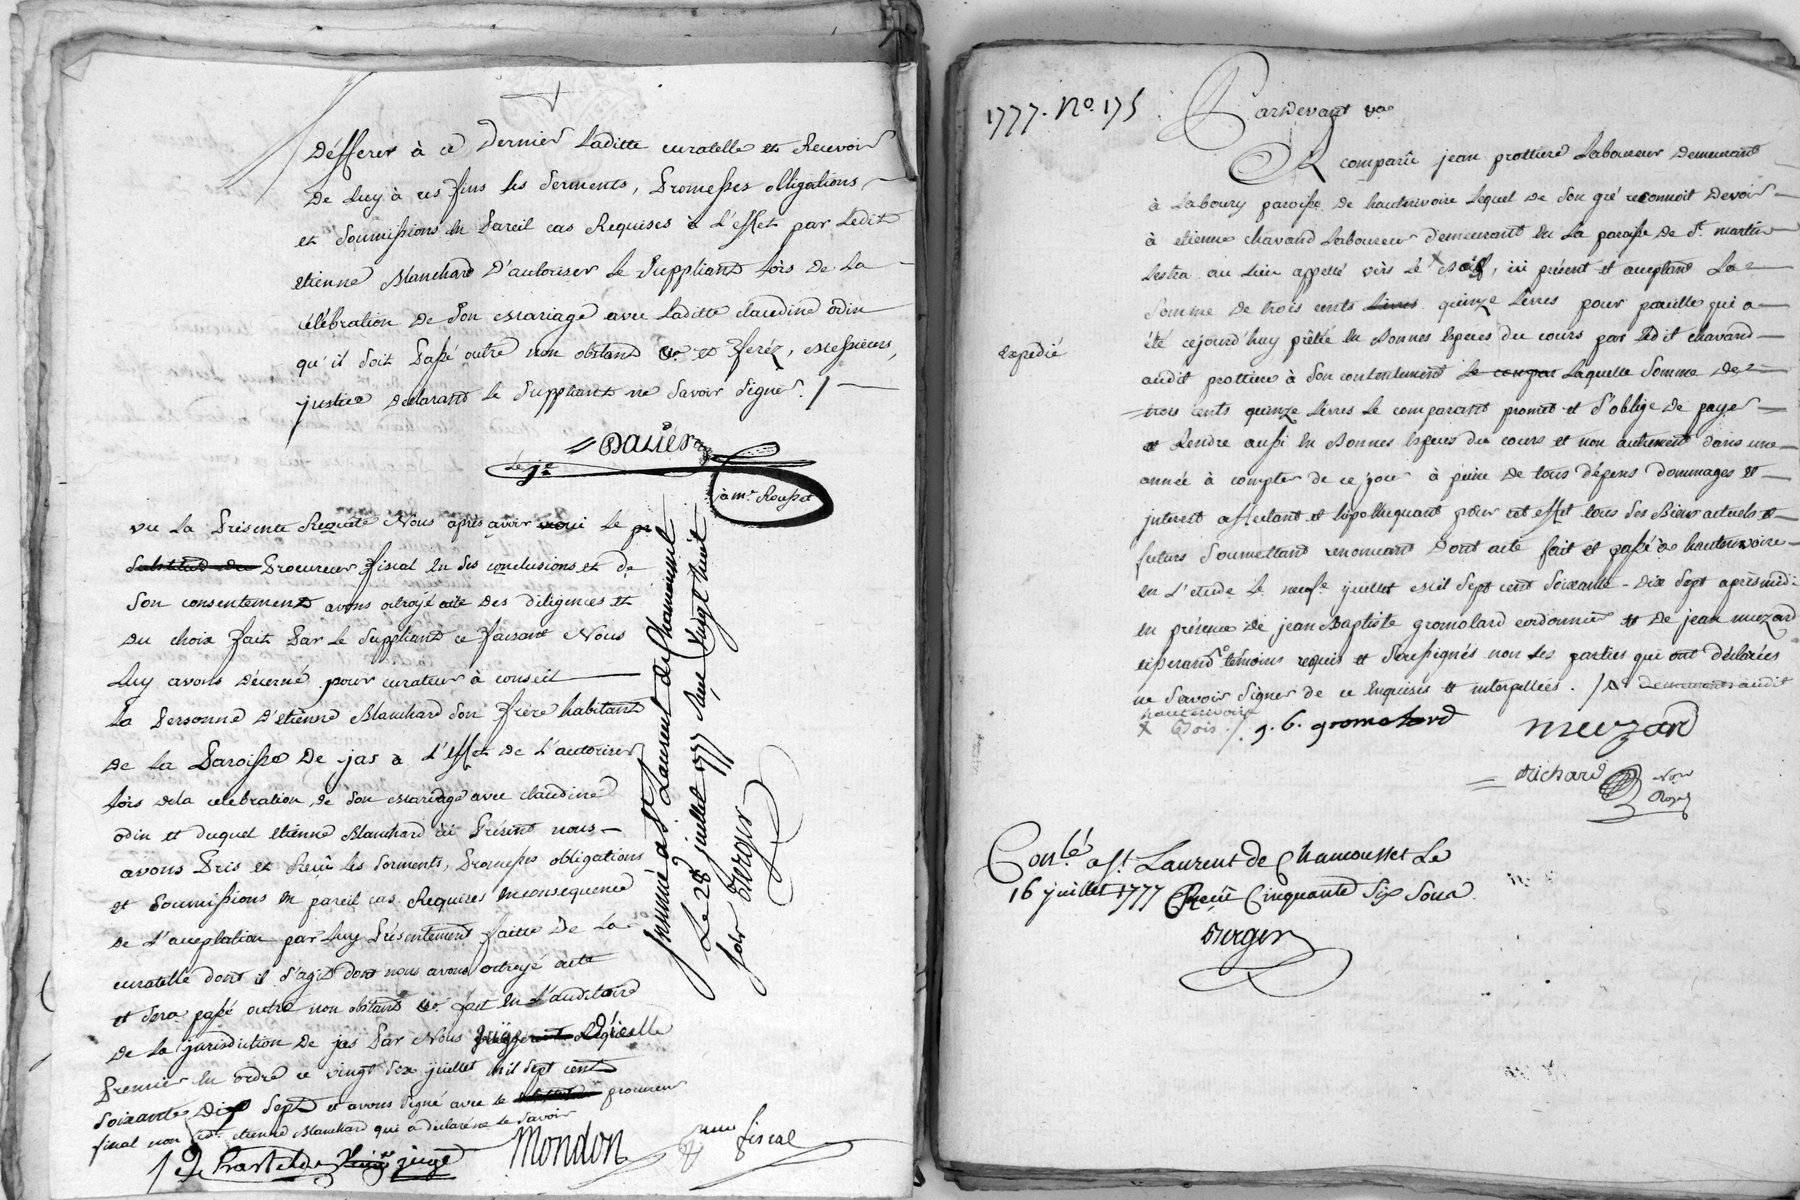 Défferer à ce Dernier Laditte curatelle et Recevoir
De Luy à ces fins les serments, Promesses obligations
et soumissions en Pareil cas Requises à L'effet par Ledit
etienne Blanchard D'autoriser le suppliant Lors de La
célébration de son mariage avec Laditte claudine odin
qu'il soit Passé outre non obstant &a et ferez, messieurs,
justice Declarant le suppliant ne savoir signer. /
à mr. Rousset
vu La Présente Requête Nous après avoir le
substitud du Procureur fiscal en ses conclusions et de
son consentement avons octroyé acte Des diligences et
Du choix fait Par le suppliant ce faisant Nous
Luy avons Décerné pour curateur à conseil
La Personne D'etienne Blanchard son frère habitant
De La Paroisse De jas a L'effet de L'autoriser
Lors dela celebration de son mariage avec claudine
odin et duquel etienne Blanchard ici Présent nous
avons Pris et Reçu les serments, Promesses obligations
et soumissions en pareil cas Requises en conséquence
De L'acceptation par Luy Présentement faitte De La
curatelle dont il s'agit dont nous avons octroyé acte
et sera passé outre non obstant &a fait en L'auditoire
De La jurisdiction De jas Par Nous
Premier en ordre ce vingt six juillet mil sept cent
soixante Dix sept et avons signé avec le procureur
fiscal non ledt. etienne Blanchard qui a déclaré ne le savoir
juge
Mondon
fiscal
Insinué a St Laurent de Chamousset
Le 28 juillet 1777 Vingt huit
Berger
1777. No. 175
Pardevant &a
A comparû jean prottiere Laboureur Demeurant
à Laboury paroisse De hauterivoire Lequel De son gré reconnoit Devoir
à etienne chavand Laboureur demeurant en La paroisse De St. martin
Lestra au Lieu appellé vers Le x ici présent et acceptant La
somme De trois cents Livres quinze Livres pour pareille qui a
été cejourd'huy prêtée en Bonnes espèces du cours par Ledit chavand
Expedié
audit prottiere à son contentement Le compar Laquelle somme De
trois cents quinze Livres Le comparant promet et s'oblige De payer
et Rendre aussi en Bonnes espèces du cours et non autrement dans une
année à compter de ce jour à peine De tous dépens dommages et
interest affectant et hipothequant pour cet effet tous ses Biens actuels et
futurs soumettant renonçant Dont acte fait et passé à hauterivoire
en L'etude Le neufe juillet mil sept cent soixante - Dix sept après midi
en présence De jean Baptiste gromolard cordonnier et De jean muzard
témoins requis et soussignés non les parties qui ont déclarées
ne savoir signer de ce Enquises et interpellées. / demeurants audit
hauterivoire
x Bois /.
j. b. gromolard
muzard
Richard
Nore
Royal
Conlé. a St. Laurent de Chamousset Le
16 juillet 1777 Reçû Cinquante six sous
Berger